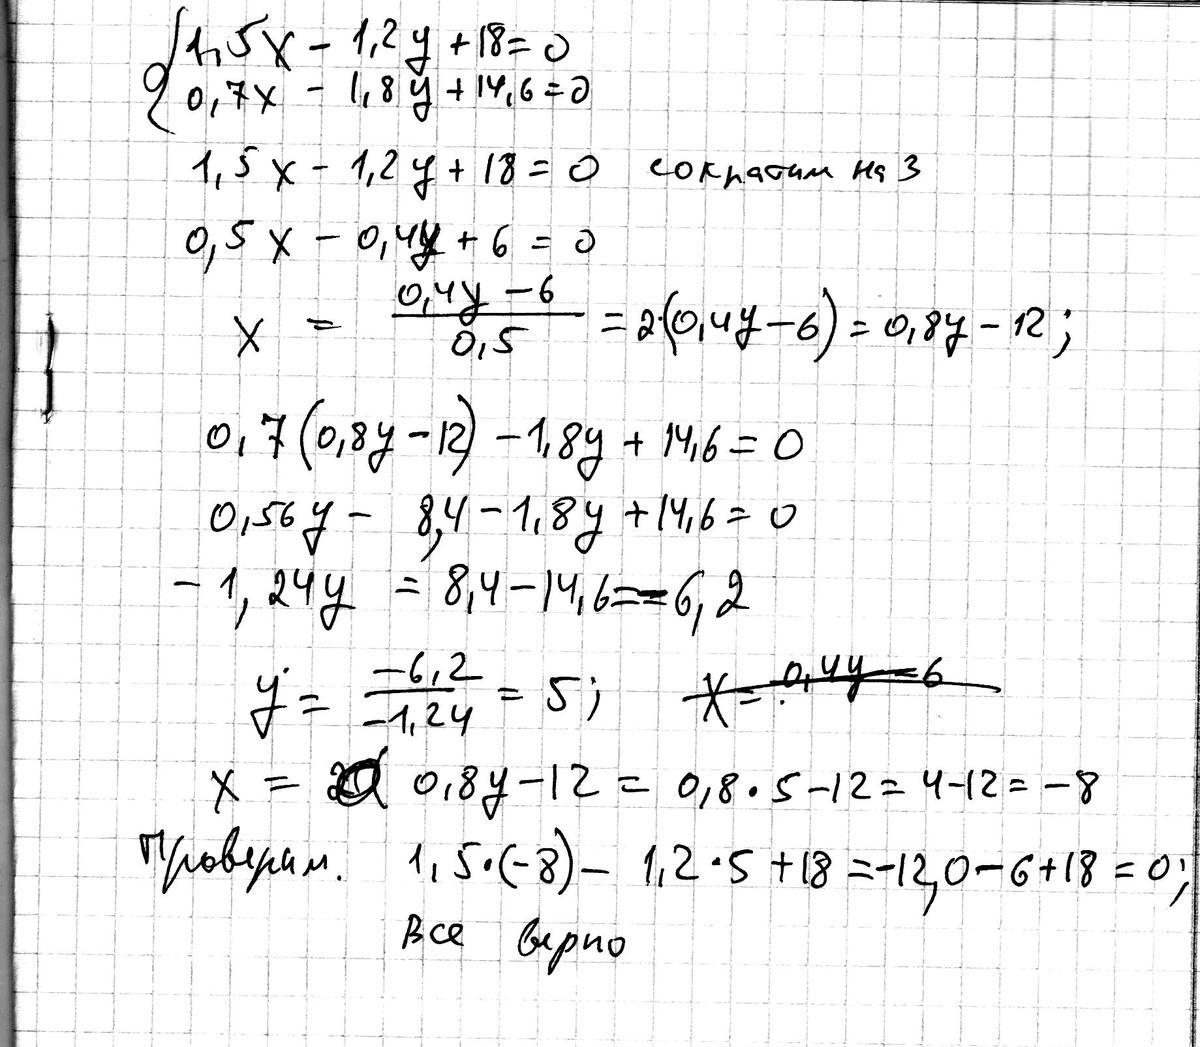 1,5x - 1,2y + 18 = 0
0,7x - 1,8y + 14,6 = 0
1,5x - 1,2y + 18 = 0 сократим на 3
0,5x - 0,4y + 6 = 0
x = (0,4y - 6)/0,5 = 2·(0,4y - 6) = 0,8y - 12;
0,7(0,8y - 12) - 1,8y + 14,6 = 0
0,56y - 8,4 - 1,8y + 14,6 = 0
- 1,24y = 8,4 - 14,6 = -6,2
y = -6,2/-1,24 = 5; x = 0,4y - 6
x = 0,8y - 12 = 0,8·5 - 12 = 4 - 12 = -8
Проверим. 1,5·(-8) - 1,2·5 + 18 = -12,0 - 6 + 18 = 0;
Все верно